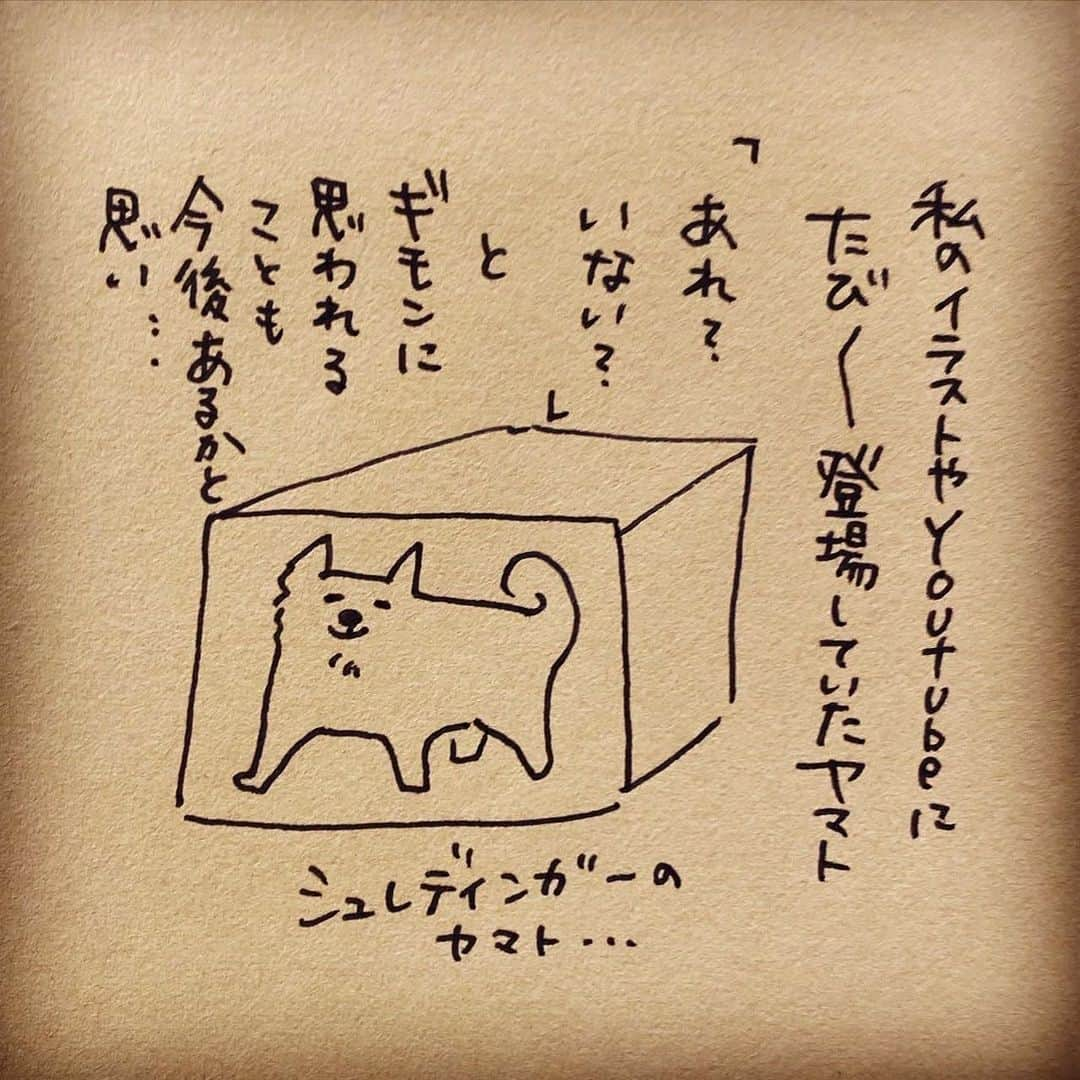 私のイラストやYoutubeに
たび〱登場していたヤマト
「あれ？
いない？」
と
ギモンに
思われる
ことも
今後あるかと
思い…
シュレディンガーの
ヤマト…